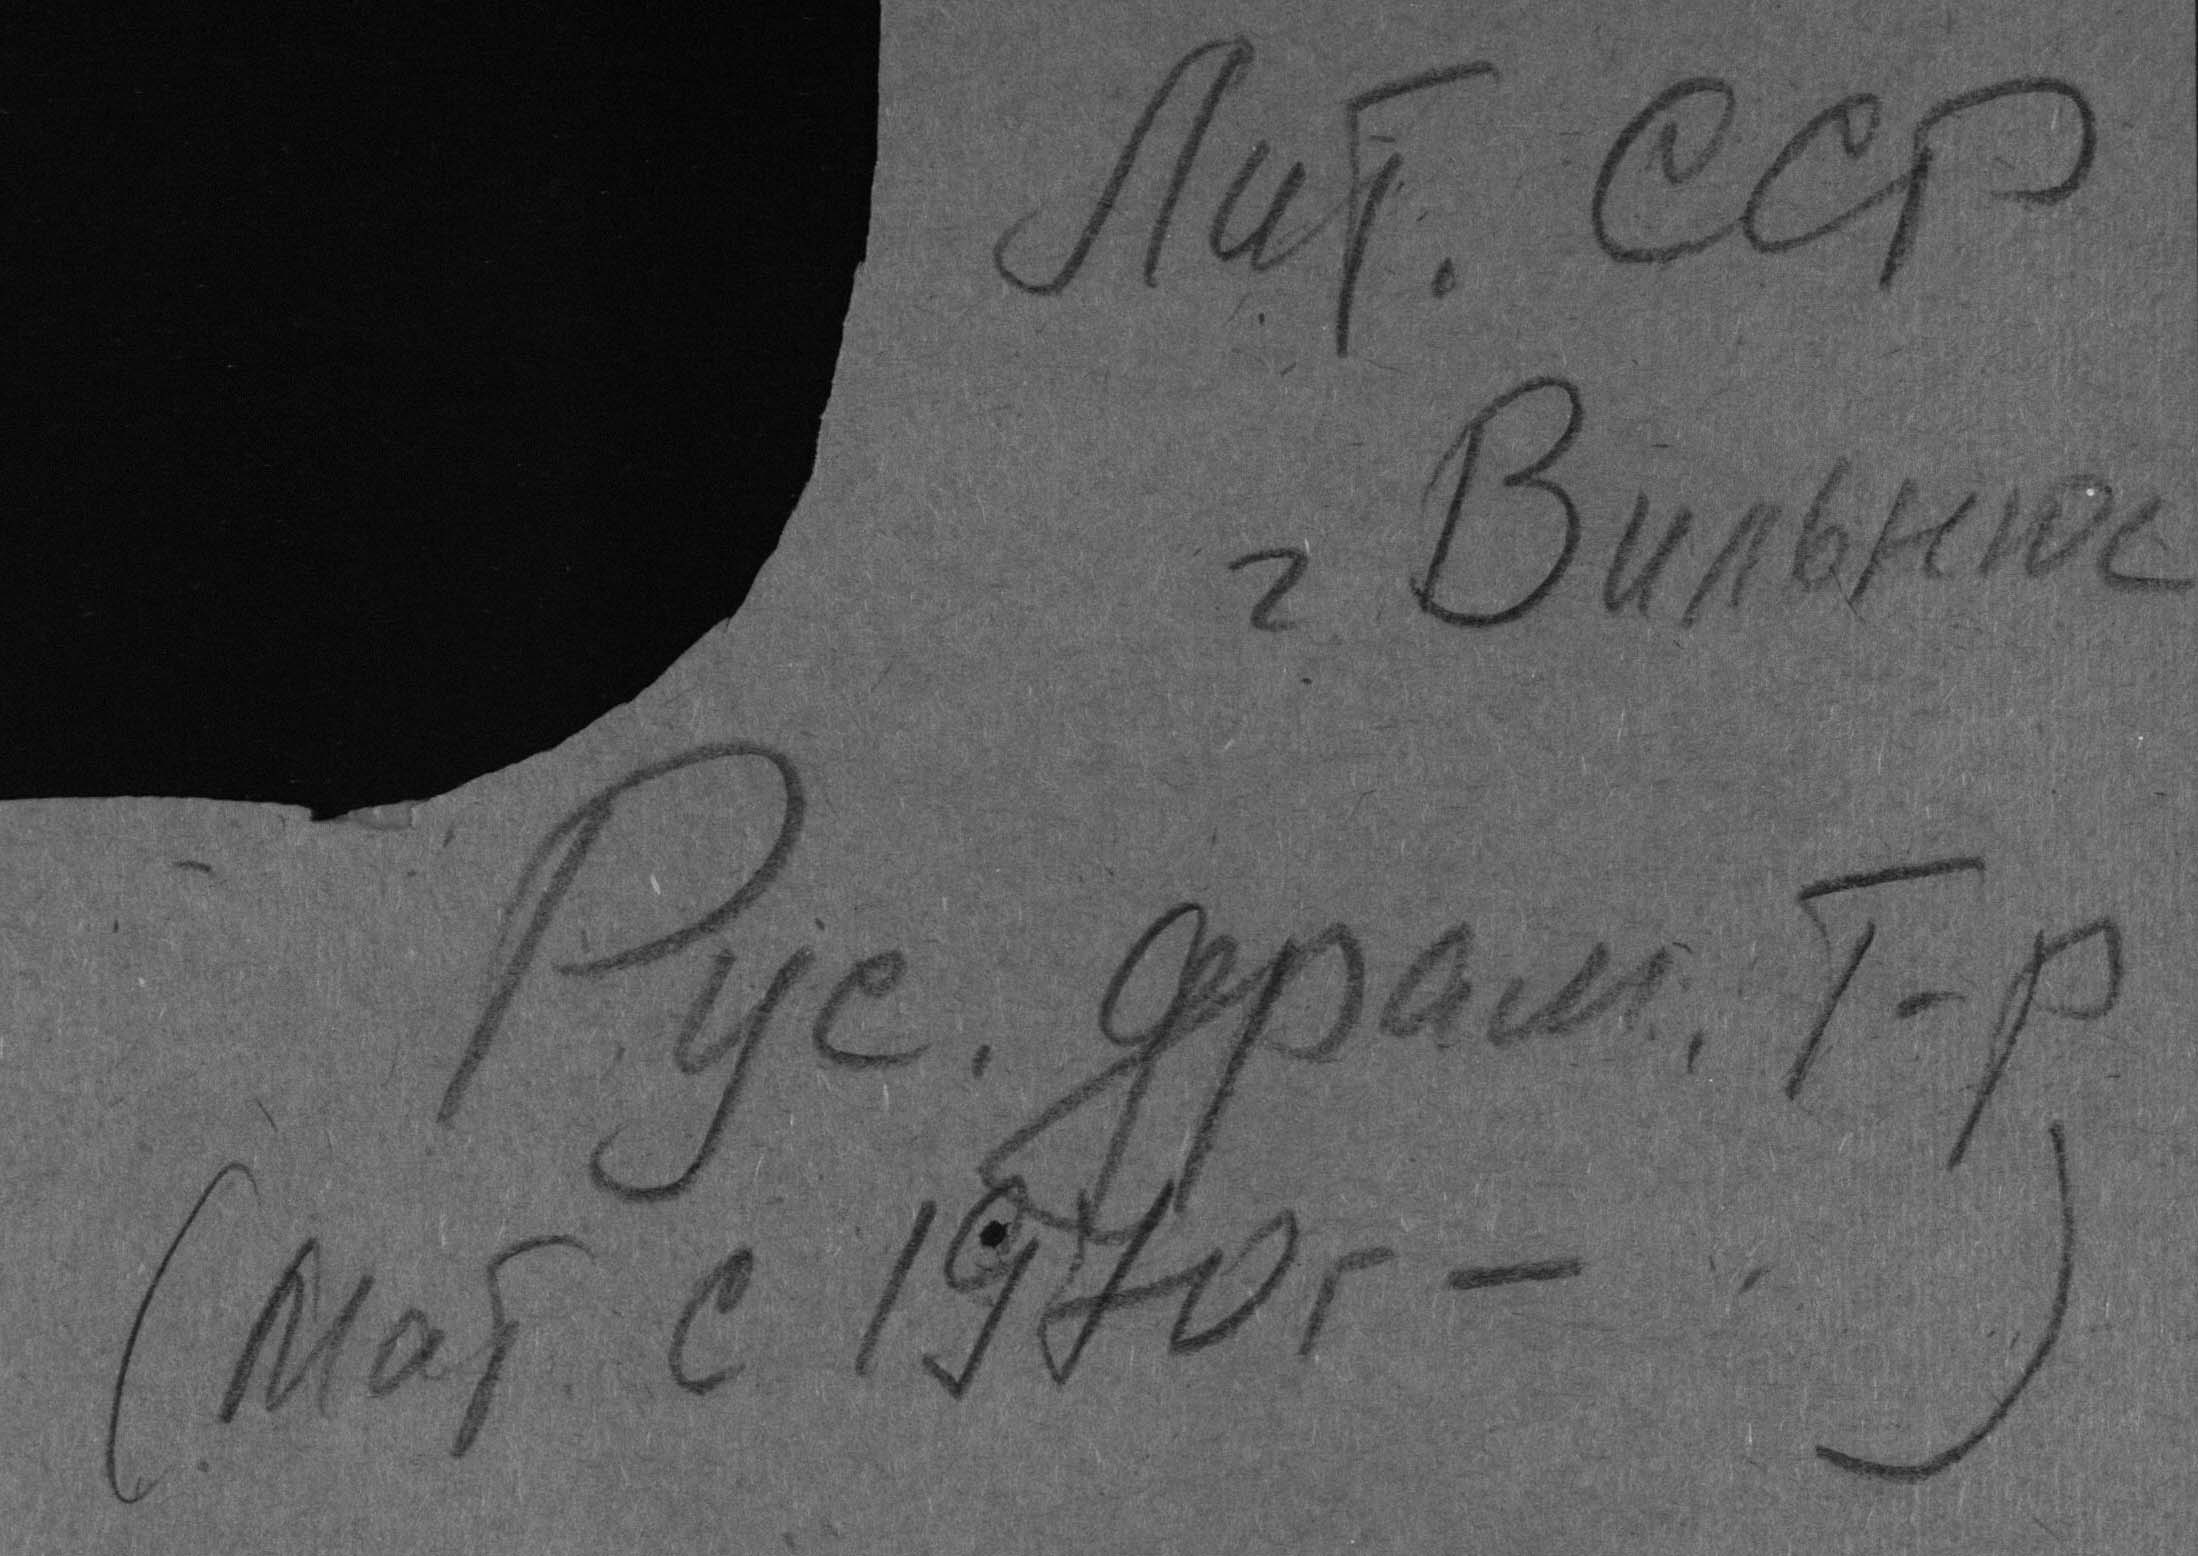 Лит. ССР
г Вильнюс
Рус. драм. Т-р
(мат с 1970г — )